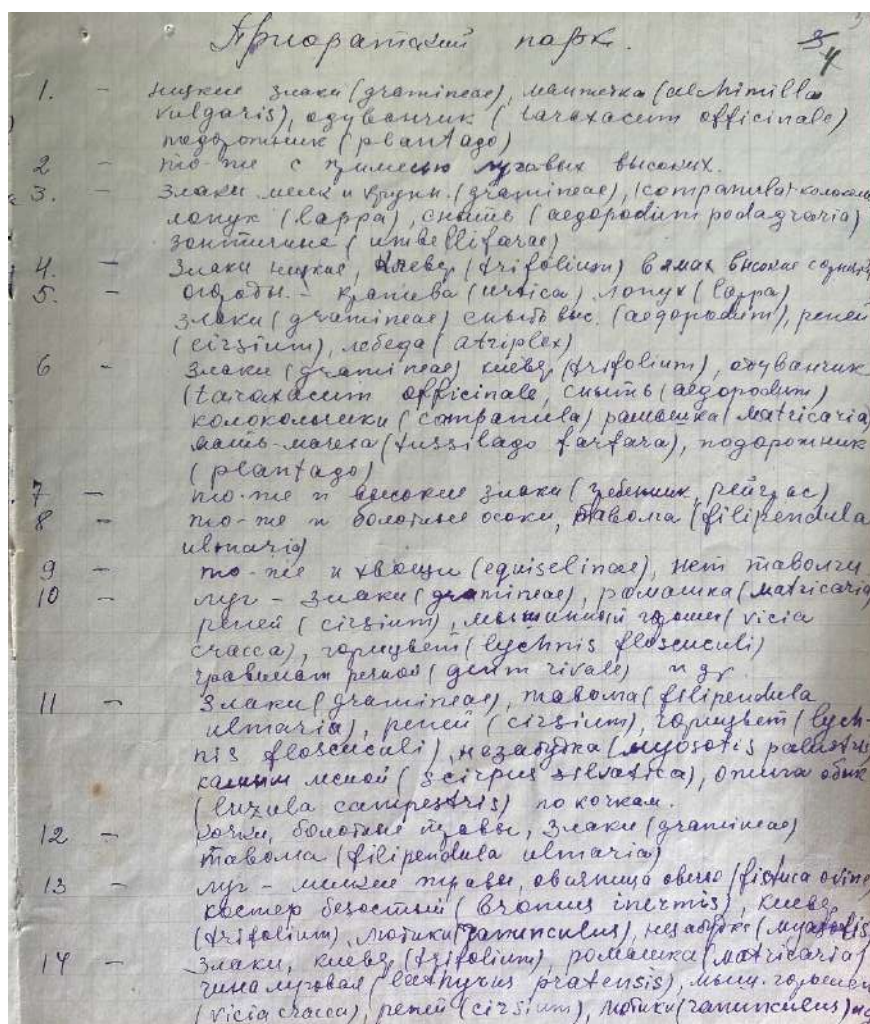 Приоратский парк.
3 4
1. - низкие злаки (gramineae), манжетка (alchimilla
vulgaris), одуванчик (taraxacum officinale)
подорожник (plantago)
2 - то-же с примесью луговых высоких.
3. - Злаки мелк и крупн. (gramineae), (companula) колокол
лопух (lappa), сныть (aegopodium podagraria)
зонтична (umbellifarae)
4. - Злаки низкие, клевер (trifolium) в ямах высокие
5. - огороды. - крапива (urtica) лопух (lappa)
злаки (gramineae) сныть выс. (aegopodum), репей
(cirsium), лебеда (atriplex)
6 - Злаки (gramineae) клевер (trifolium), одуванчик
(taraxacum officinale, сныть (aegopodum)
колокольчики (companula) ромашка (matricaria)
мать-мачеха (tussilago farfara), подорожник
(plantago)
7 - то-же и высокие злаки (гребенник, рейграс)
8 - то-же и болотные осоки, таволга (filipendula
ulmaria)
9 - то-же и хвощи (equiselinae), нет таволги
10 - луг - злаки (gramineae), ромашка (matricaria)
репей (cirsium), мышинный горошек (vicia
cracca), горицвет (lychnis floscuculi)
гравилат речной (geum rivale) и др
11 - Злаки (gramineae), таволга (filipendula
ulmaria), репей (cirsium), горицвет (lych-
nis floscuculi), незабудка (myosotis palustris
камыш лесной (scirpus silvatica), ожига обык
(luzula campestris) по кочкам.
12 - кочки, болотные травы, злаки (gramineae)
таволга (filipendula ulmaria)
13 - луг - мелкие травы, овсянница овечья (fistuca ovine
костер безостый (bromus inermis), клевер
(trifolium), лютики (ranunculus), незабудка (myosotis
14 - Злаки, клевер (trifolium), ромашка (matricaria)
чина луговая (lathyrus pratensis), мыш. горошек
(vicia cracca), репей (cirsium), лютики (ranunculus) и др